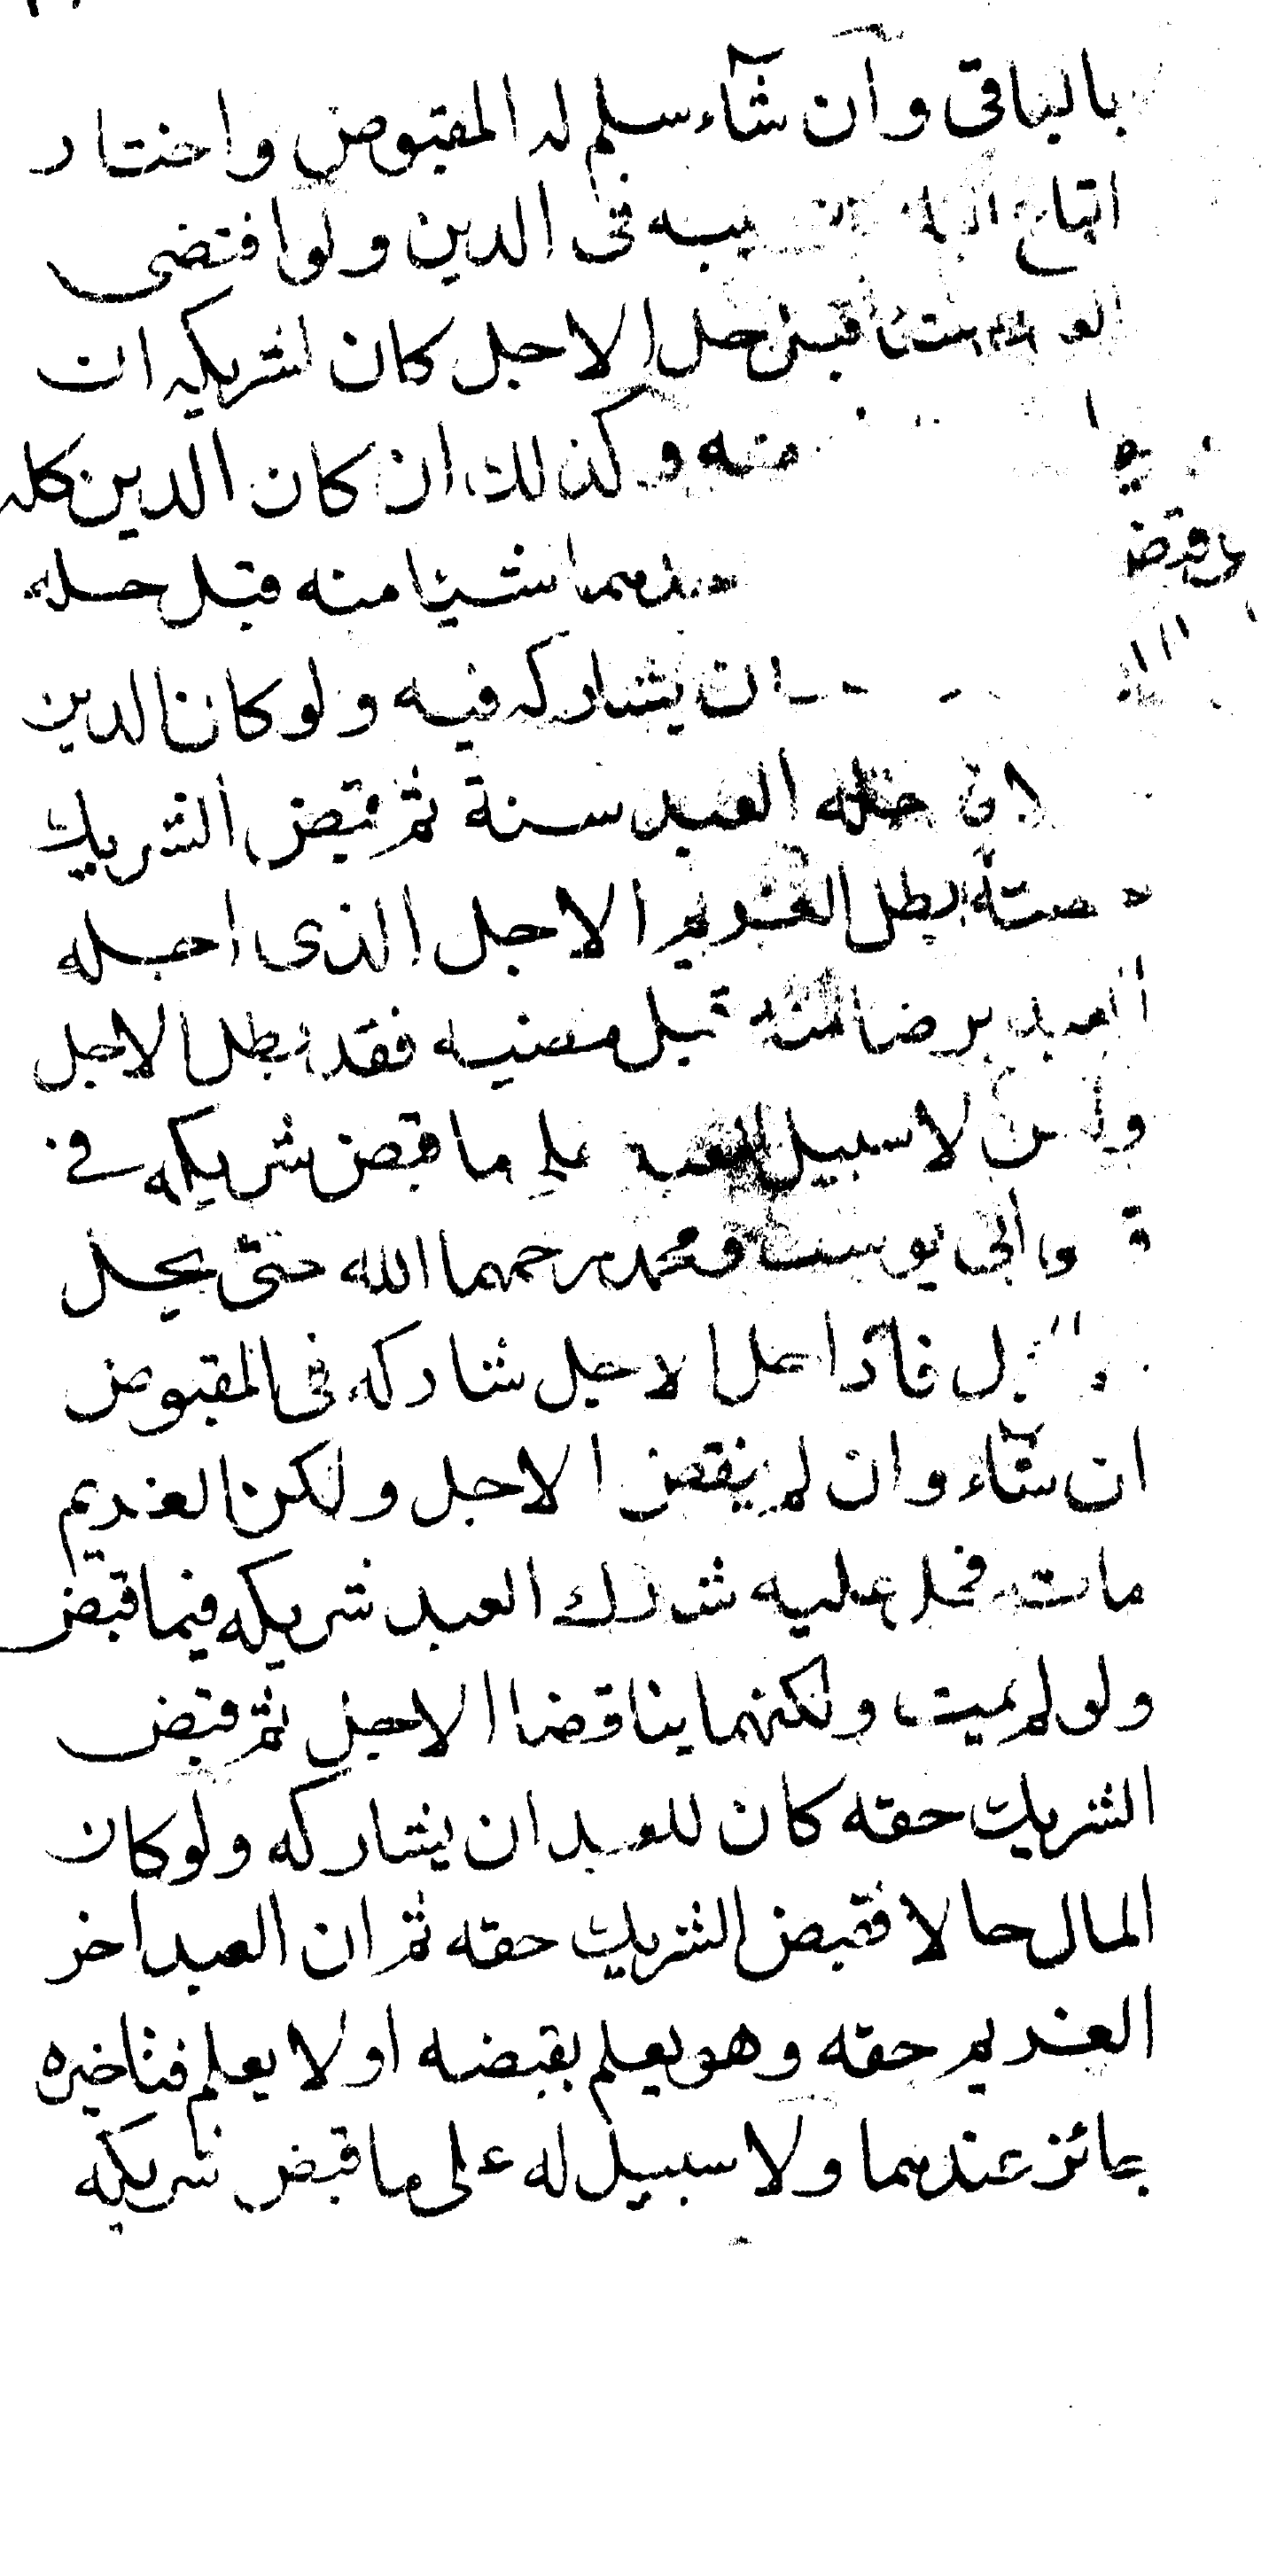 بالباقى وان شآء سلم له المقبوض واختار
اتباع يبه فى الدين ولو اقتضى
قبل حل الاجل كان لشريكه ان
منه وكذلك ان كان الدين كله
منهما شيئا منه قبل حله
ان يشاركه فيه ولو كان الدين
العبد سنة ثم قبض الشريك
بطل الغريم الاجل الذى اجله
العبد برضا منه قبل مضيه فقد بطل الاجل
لا سبيل للعبد على ما قبض شريكه فى
وابى يوسف ومحمد رحمهما الله حتى يحل
فاذا حل الاجل شاركه فى المقبوض
ان شآء وان لم ينقض الاجل ولكن الغريم
مات فحل عليه شارك العبد شريكه فيما قبض
ولو لم يميت ولكنهما يناقضا الاجل ثم قبض
الشريك حقه كان للعبد ان يشاركه ولو كان
المال حالا فقبض الشريك حقه ثم ان العبد اخر
الغريم حقه وهو يعلم بقبضه او لا يعلم فتاخيره
جائز عندهما ولا سبيل له على ما قبض شريكه